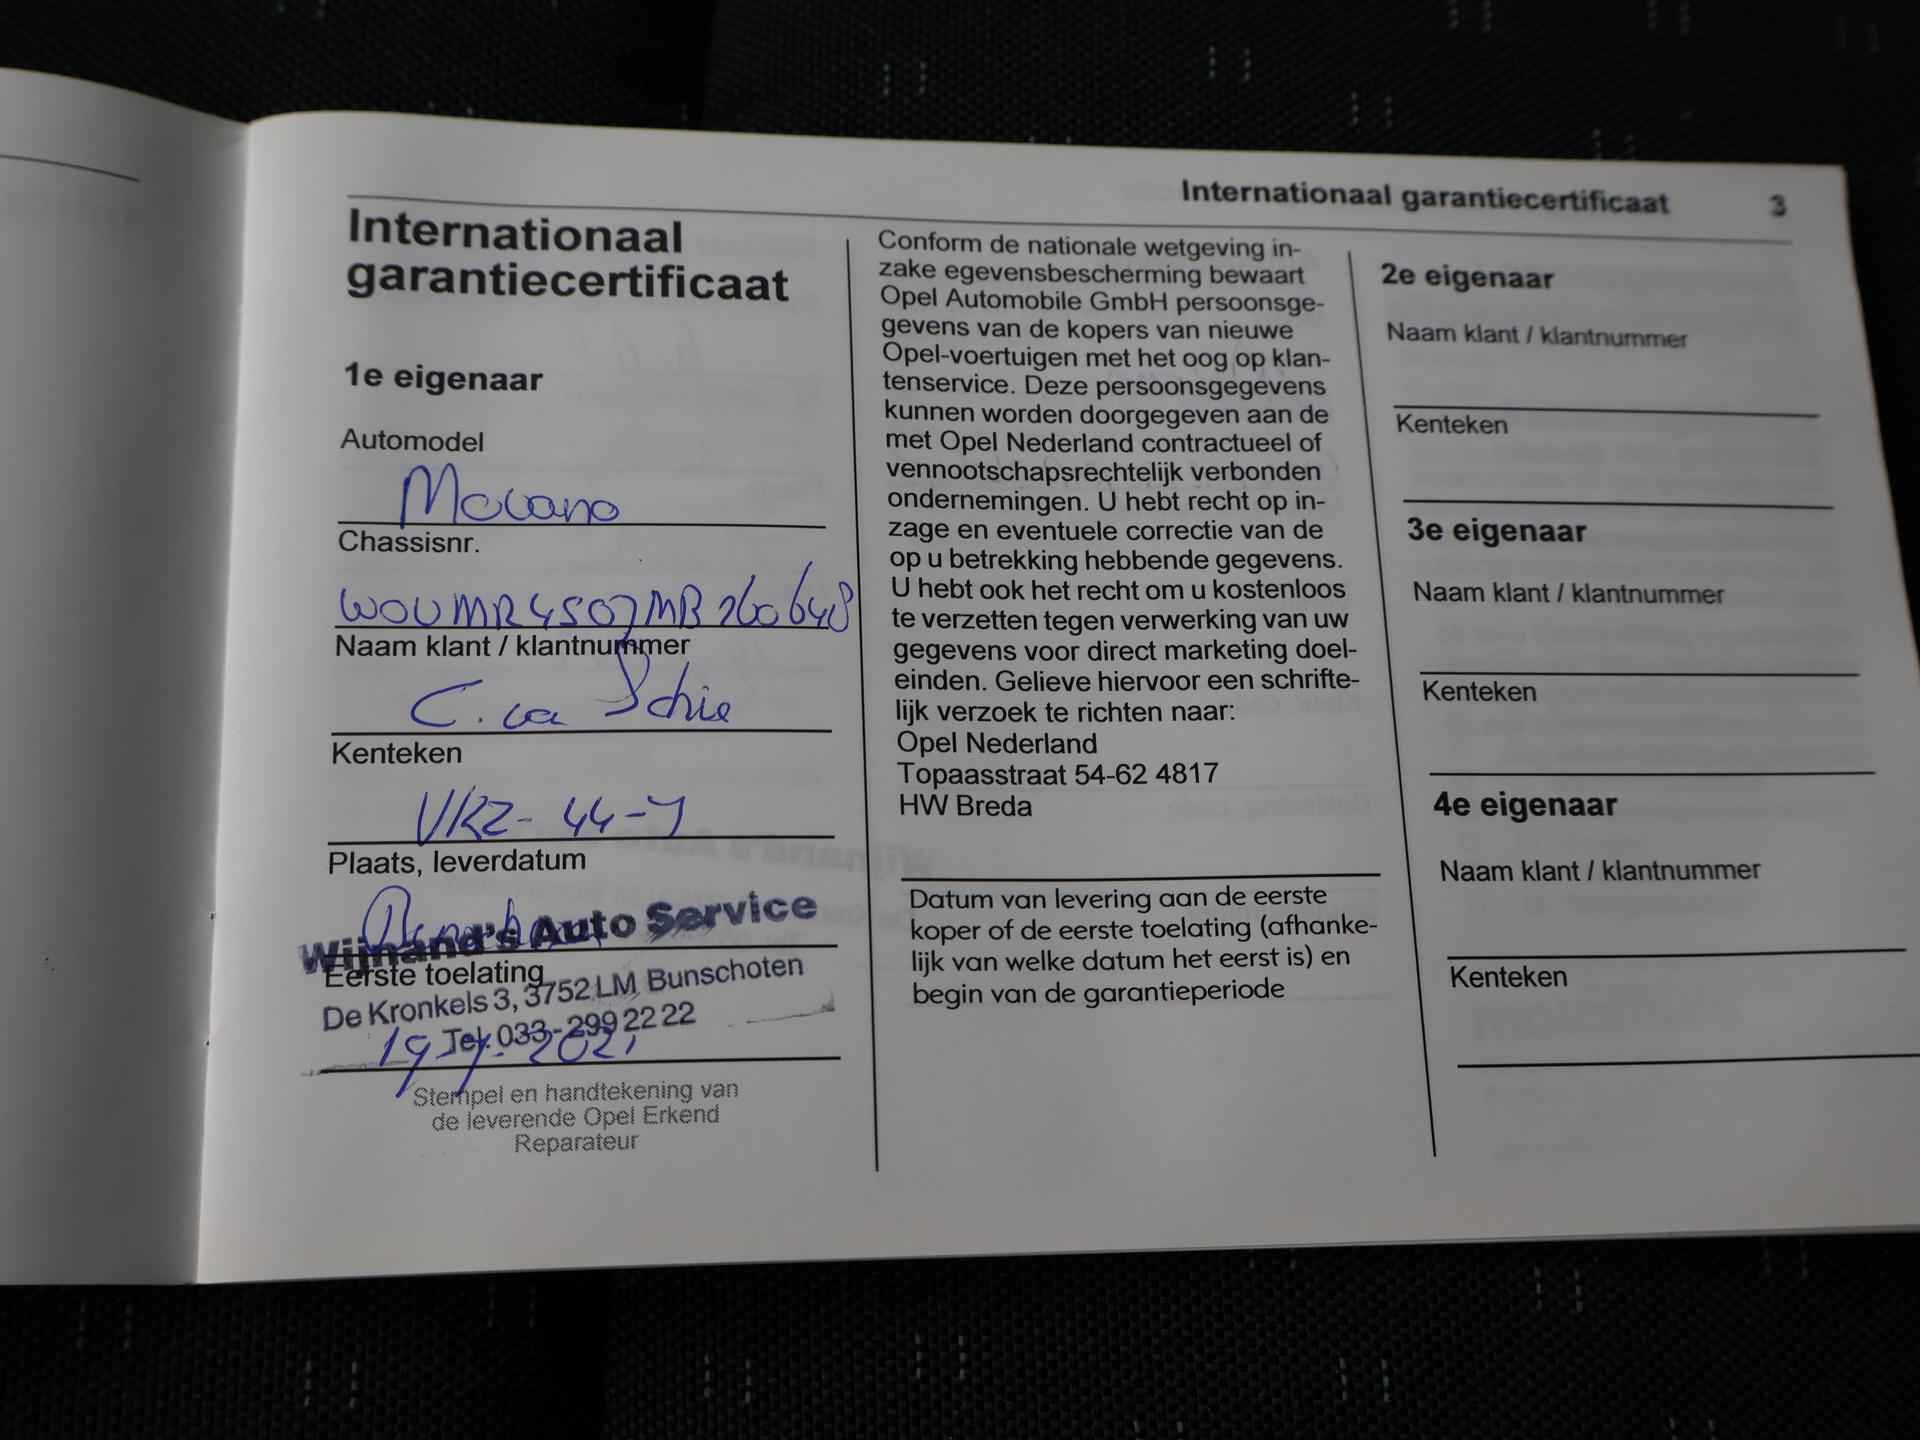 Internationaal garantiecertificaat 3
Internationaal
garantiecertificaat
1e eigenaar
Automodel
Movano
Chassisnr.
W0VMR4S07MB260648
Naam klant / klantnummer
C. va Schie
Kenteken
VRZ-44-J
Plaats, leverdatum
Wijnand's Auto Service
Eerste toelating
De Kronkels 3, 3752 LM Bunschoten
Tel. 033-299 22 22
19-7-2021
Stempel en handtekening van
de leverende Opel Erkend
Reparateur
Conform de nationale wetgeving in-
zake egevensbescherming bewaart
Opel Automobile GmbH persoonsge-
gevens van de kopers van nieuwe
Opel-voertuigen met het oog op klan-
tenservice. Deze persoonsgegevens
kunnen worden doorgegeven aan de
met Opel Nederland contractueel of
vennootschapsrechtelijk verbonden
ondernemingen. U hebt recht op in-
zage en eventuele correctie van de
op u betrekking hebbende gegevens.
U hebt ook het recht om u kostenloos
te verzetten tegen verwerking van uw
gegevens voor direct marketing doel-
einden. Gelieve hiervoor een schrifte-
lijk verzoek te richten naar:
Opel Nederland
Topaasstraat 54-62 4817
HW Breda
Datum van levering aan de eerste
koper of de eerste toelating (afhanke-
lijk van welke datum het eerst is) en
begin van de garantieperiode
2e eigenaar
Naam klant / klantnummer
Kenteken
3e eigenaar
Naam klant / klantnummer
Kenteken
4e eigenaar
Naam klant / klantnummer
Kenteken